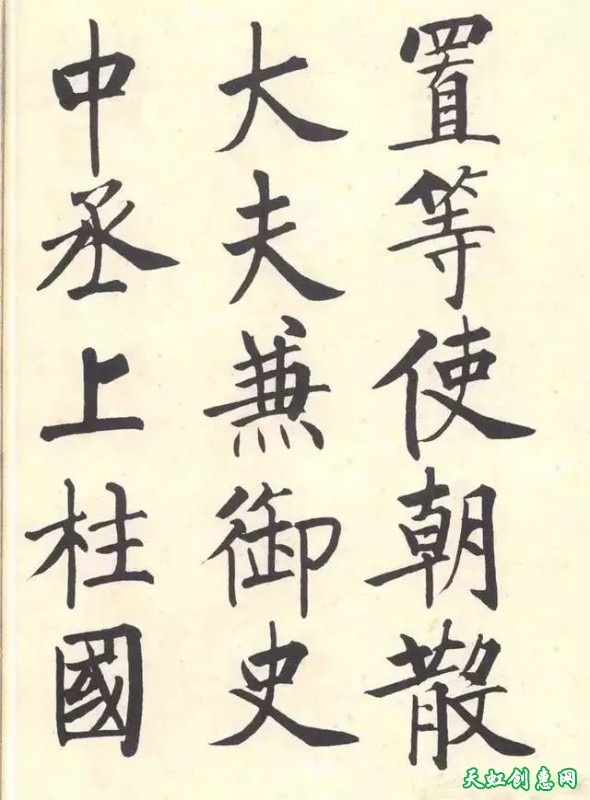 置等使朝散
大夫兼御史
中丞上柱國
天虹创惠网